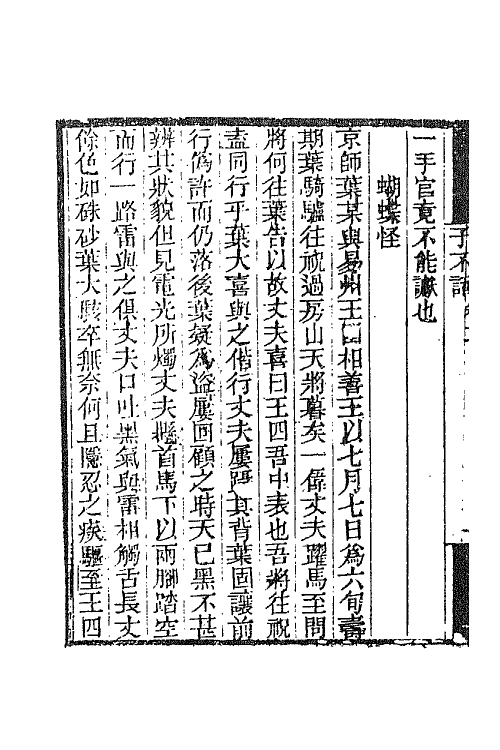 子不語
一手官竟不能讞也
蝴蝶怪
京師葉某與易州王四相善王以七月七日為六旬壽
期葉騎驢往祝過房山天將暮矣一偉丈夫躍馬至問
將何往葉告以故丈夫喜曰王四吾中表也吾將往祝
盍同行乎葉大喜與之偕行丈夫屢躡其背葉固讓前
行偽許而仍落後葉疑為盜屢回顧之時天已黑不甚
辨其狀貌但見電光所燭丈夫懸首馬下以兩腳踏空
而行一路雷與之俱丈夫口吐黑氣與雷相觸舌長丈
餘色如硃砂葉大駭卒無奈何且隱忍之疾驅至王四